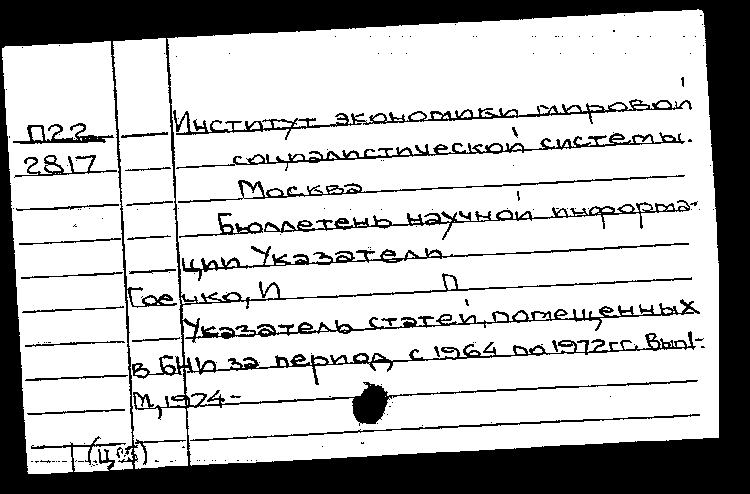 П22
2817
Институт экономики мировой
социалистической системы.
Москва
Бюллетень научной информа-
ции Указатели
Гоешко, И П
Указатель статей, помещенных
в БНИ за период с 1964 по 1972гг. Вып1-
М, 1974-